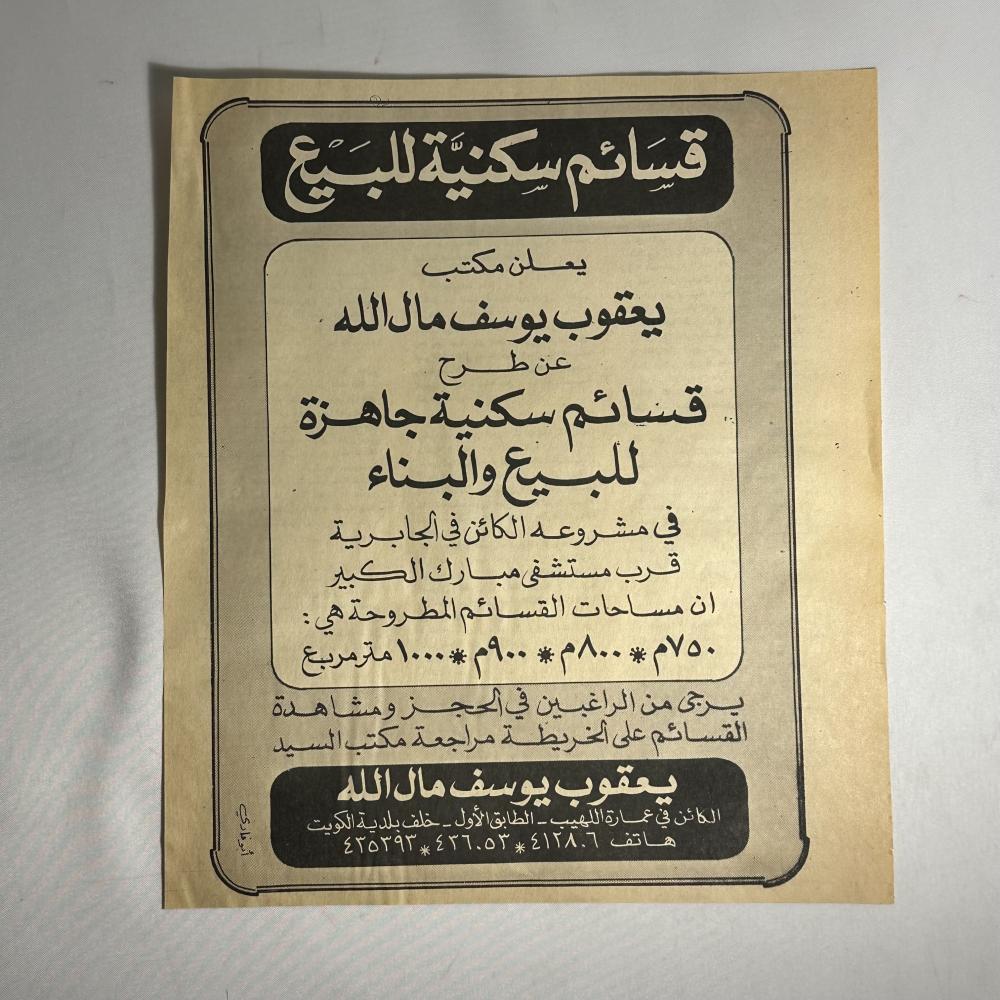 قسَائم سكنيَّة للبَيْع
يعلن مكتب
يعقوب يوسف مال الله
عن طرح
قسائم سكنية جاهزة
للبيع والبناء
في مشروعه الكائن في الجابرية
قرب مستشفى مبارك الكبير
ان مساحات القسائم المطروحة هي :
٧٥٠م * ٨٠٠م * ٩٠٠م * ١٠٠٠ متر مربع
يرجى من الراغبين في الحجز ومشاهدة
القسائم على الخريطة مراجعة مكتب السيد
يعقوب يوسف مال الله
الكائن في عمارة اللهيب - الطابق الأول - خلف بلدية الكويت
هاتف ٤١٢٨٠٦ * ٤٣٦٠٥٣ * ٤٣٥٣٩٣